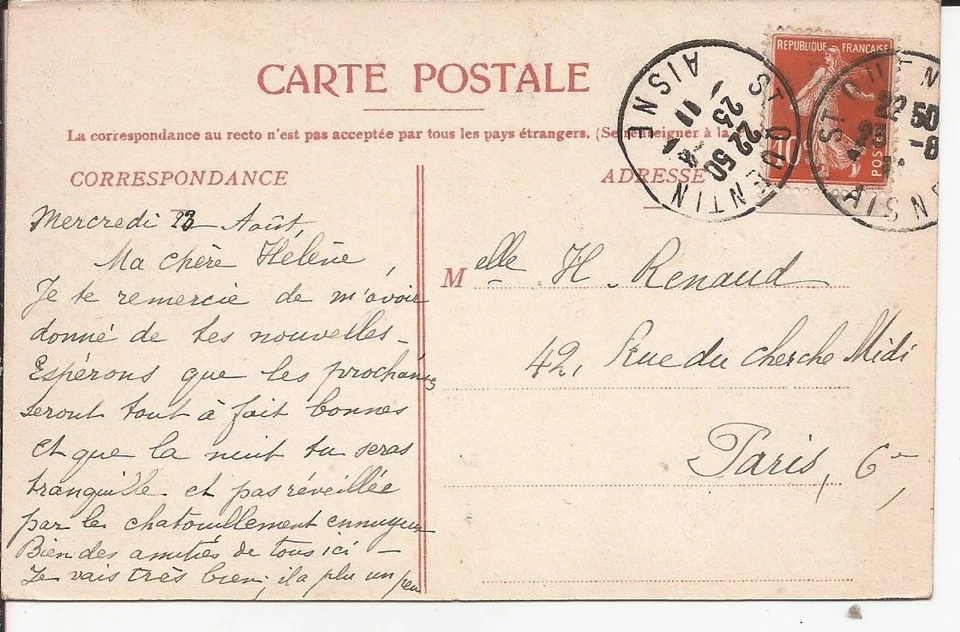 CARTE POSTALE
La correspondance au recto n'est pas acceptée par tous les pays étrangers. (Se renseigner à la
CORRESPONDANCE
Mercredi 23 Août,
Ma chère Hélène,
Je te remercie de m'avoir
donné de tes nouvelles -
Espérons que les prochaines
seront tout à fait bonnes
et que la nuit tu seras
tranquille et pas réveillée
par le chatouillement ennuyeux
Bien des amitiés de tous ici -
Je vais très bien; il a plu un peu
ADRESSE
Melle H. Renaud
42, Rue du Cherche Midi
Paris, 6e
REPUBLIQUE FRANÇAISE
10
POSTES
ST QUENTIN
AISNE
22 50
23 -8
11
ST QUENTIN
AISNE
22 50
23 -8